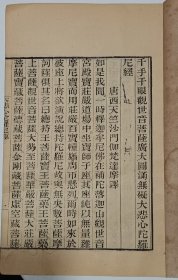 千手千眼觀世音菩薩廣大圓滿無礙大悲心陀羅
尼經
唐西天竺沙門伽梵達摩譯
如是我聞一時釋迦牟尼佛在補陀落迦山觀世音
宮殿寶莊嚴道場中坐寶師子座其座純以無量雜
摩尼寶而用莊嚴百寶幢旛周帀懸列爾時如來於
彼座上將欲演說總持陀羅尼故與無央數菩薩摩
訶薩俱其名曰總持王菩薩寶王菩薩藥王菩薩藥
上菩薩觀世音菩薩大勢至菩薩華嚴菩薩大莊嚴
菩薩寶藏菩薩德藏菩薩金剛藏菩薩虛空藏菩薩